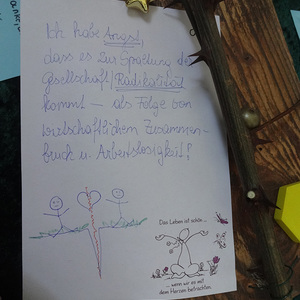 Ich habe Angst,
dass es zur Spaltung der
Gesellschaft/Radikalität
kommt – als Folge von
wirtschaftlichem Zusammen-
bruch u. Arbeitslosigkeit!
Das Leben ist schön...
... wenn wir es mit
dem Herzen betrachten.